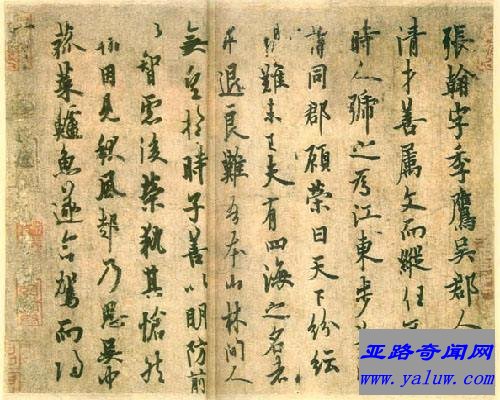 張翰字季鷹吳郡人
清才善屬文而縱任不
時人號之為江東步
謂同郡顧榮曰天下紛紜
禍難未已夫有四海之名者
求退良難吾本山林間人
無望於時子善以明防前
以智慮後榮執其愴然
翰因見秋風起乃思吳中
菰菜鱸魚遂命駕而歸
亚路奇闻网
www.yaluw.com